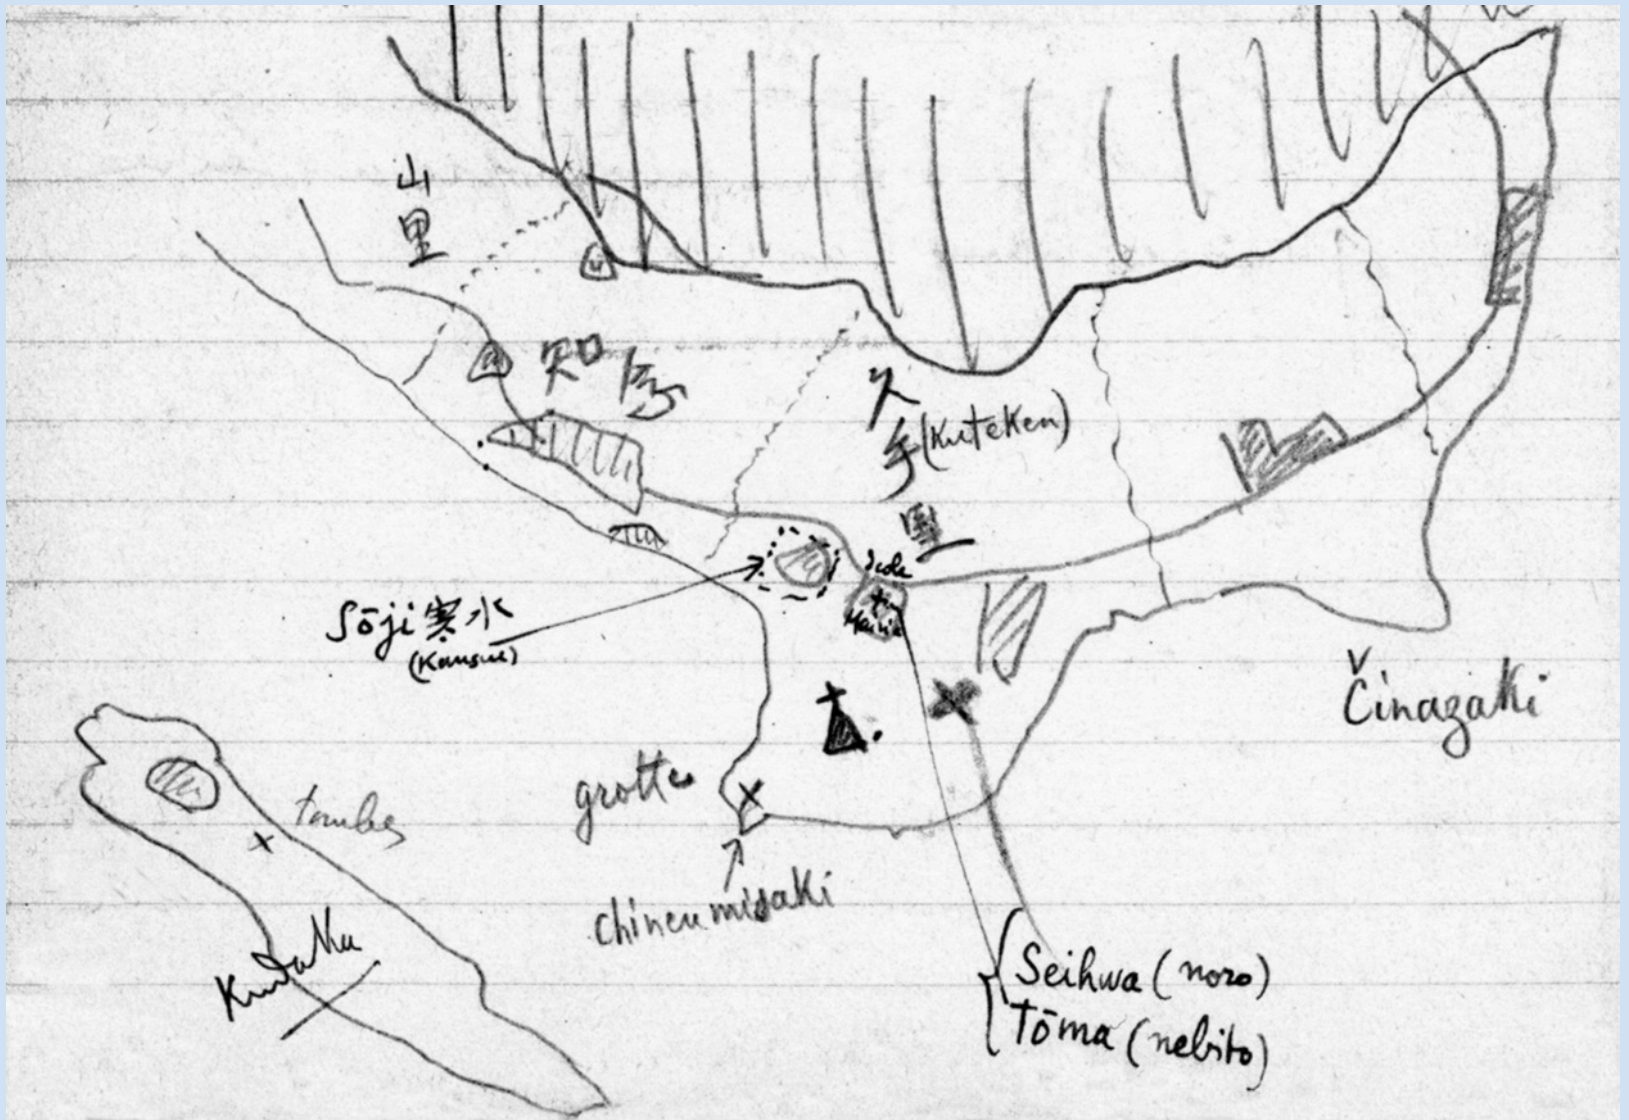 山
里
知
久
手 (Kuteken)
里
Sōji 寒水
(Kansui)
Čինazaki
grotte
tombes
Kudaka
chinenmisaki
Seihwa (noro)
Tōma (nebito)